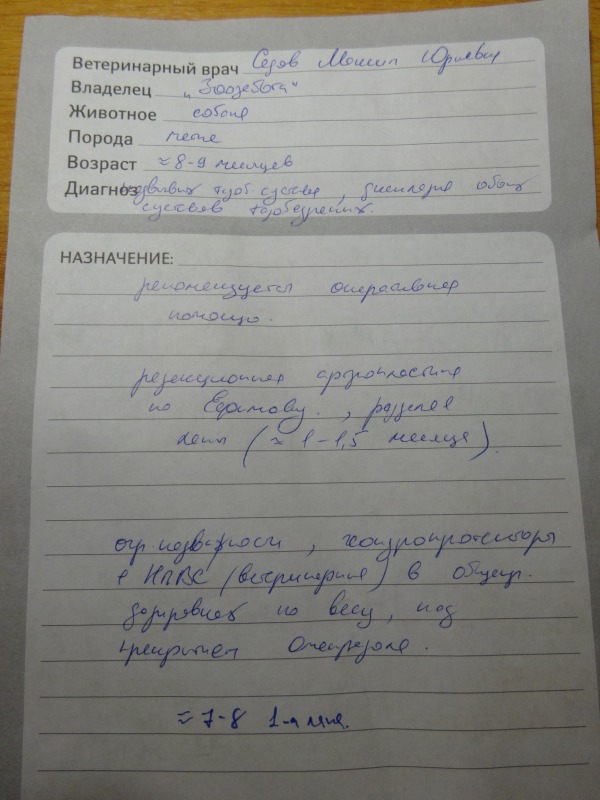 Ветеринарный врач Седов Максим Юрьевич
Владелец „Зоозабота“
Животное собака
Порода метис
Возраст ≈ 8-9 месяцев
Диагноз подвывих т/об. сустава, дисплазия обоих
суставов тазобедренных.
НАЗНАЧЕНИЕ:
рекомендуется оперативная
помощь.
резекционная артропластика
по , разделяя
лапы (≈ 1-1,5 месяца)
огр. подвижности, хондропротекторы
и НПВС (ветеринарные) в общепр.
дозировках по весу, под
прикрытием Омепразола.
≈ 7-8 1-я лапа.